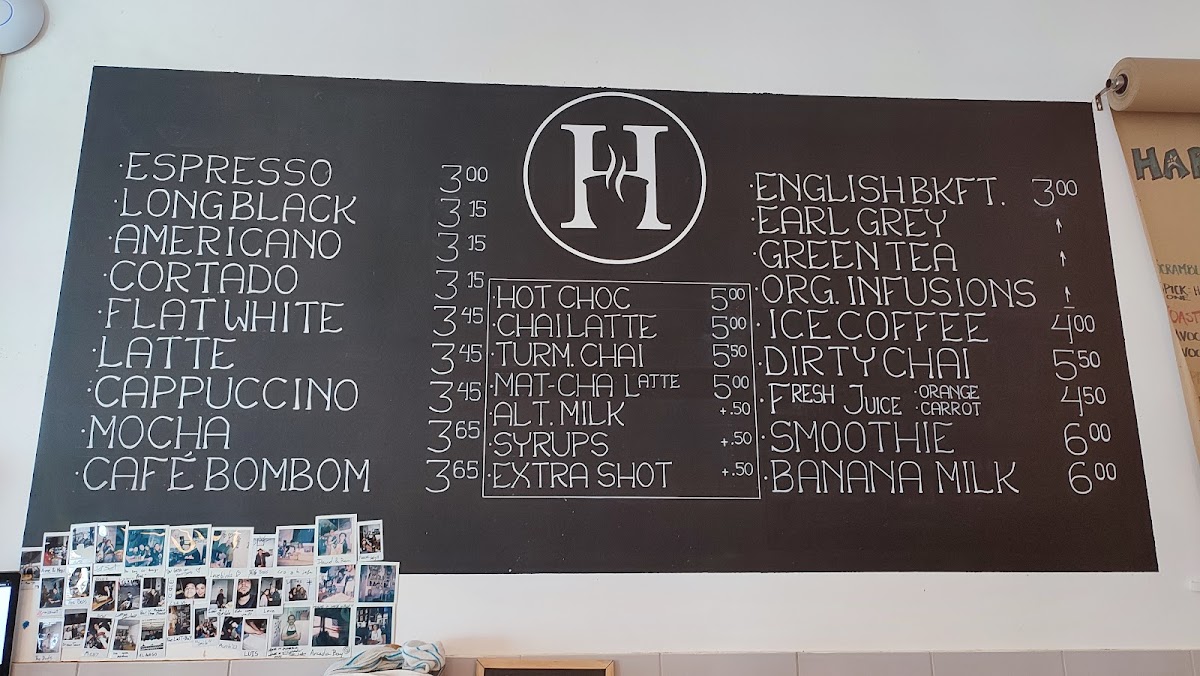 ·ESPRESSO 3.00
·LONG BLACK 3 15
·AMERICANO 3 15
·CORTADO 3 15
·FLAT WHITE 3 45
·LATTE 3 45
·CAPPUCCINO 3 45
·MOCHA 3 65
·CAFÉ BOMBOM 3 65
H
·HOT CHOC 5 00
·CHAI LATTE 5 00
·TURM. CHAI 5 50
·MAT-CHA LATTE 5 00
·ALT. MILK +.50
·SYRUPS +.50
·EXTRA SHOT +.50
·ENGLISH BKFT. 3 00
·EARL GREY ↑
·GREEN TEA ↑
·ORG. INFUSIONS ↑
·ICE COFFEE 4 00
·DIRTY CHAI 5 50
·FRESH JUICE ·ORANGE ·CARROT 4 50
·SMOOTHIE 6 00
·BANANA MILK 6 00
LUIS